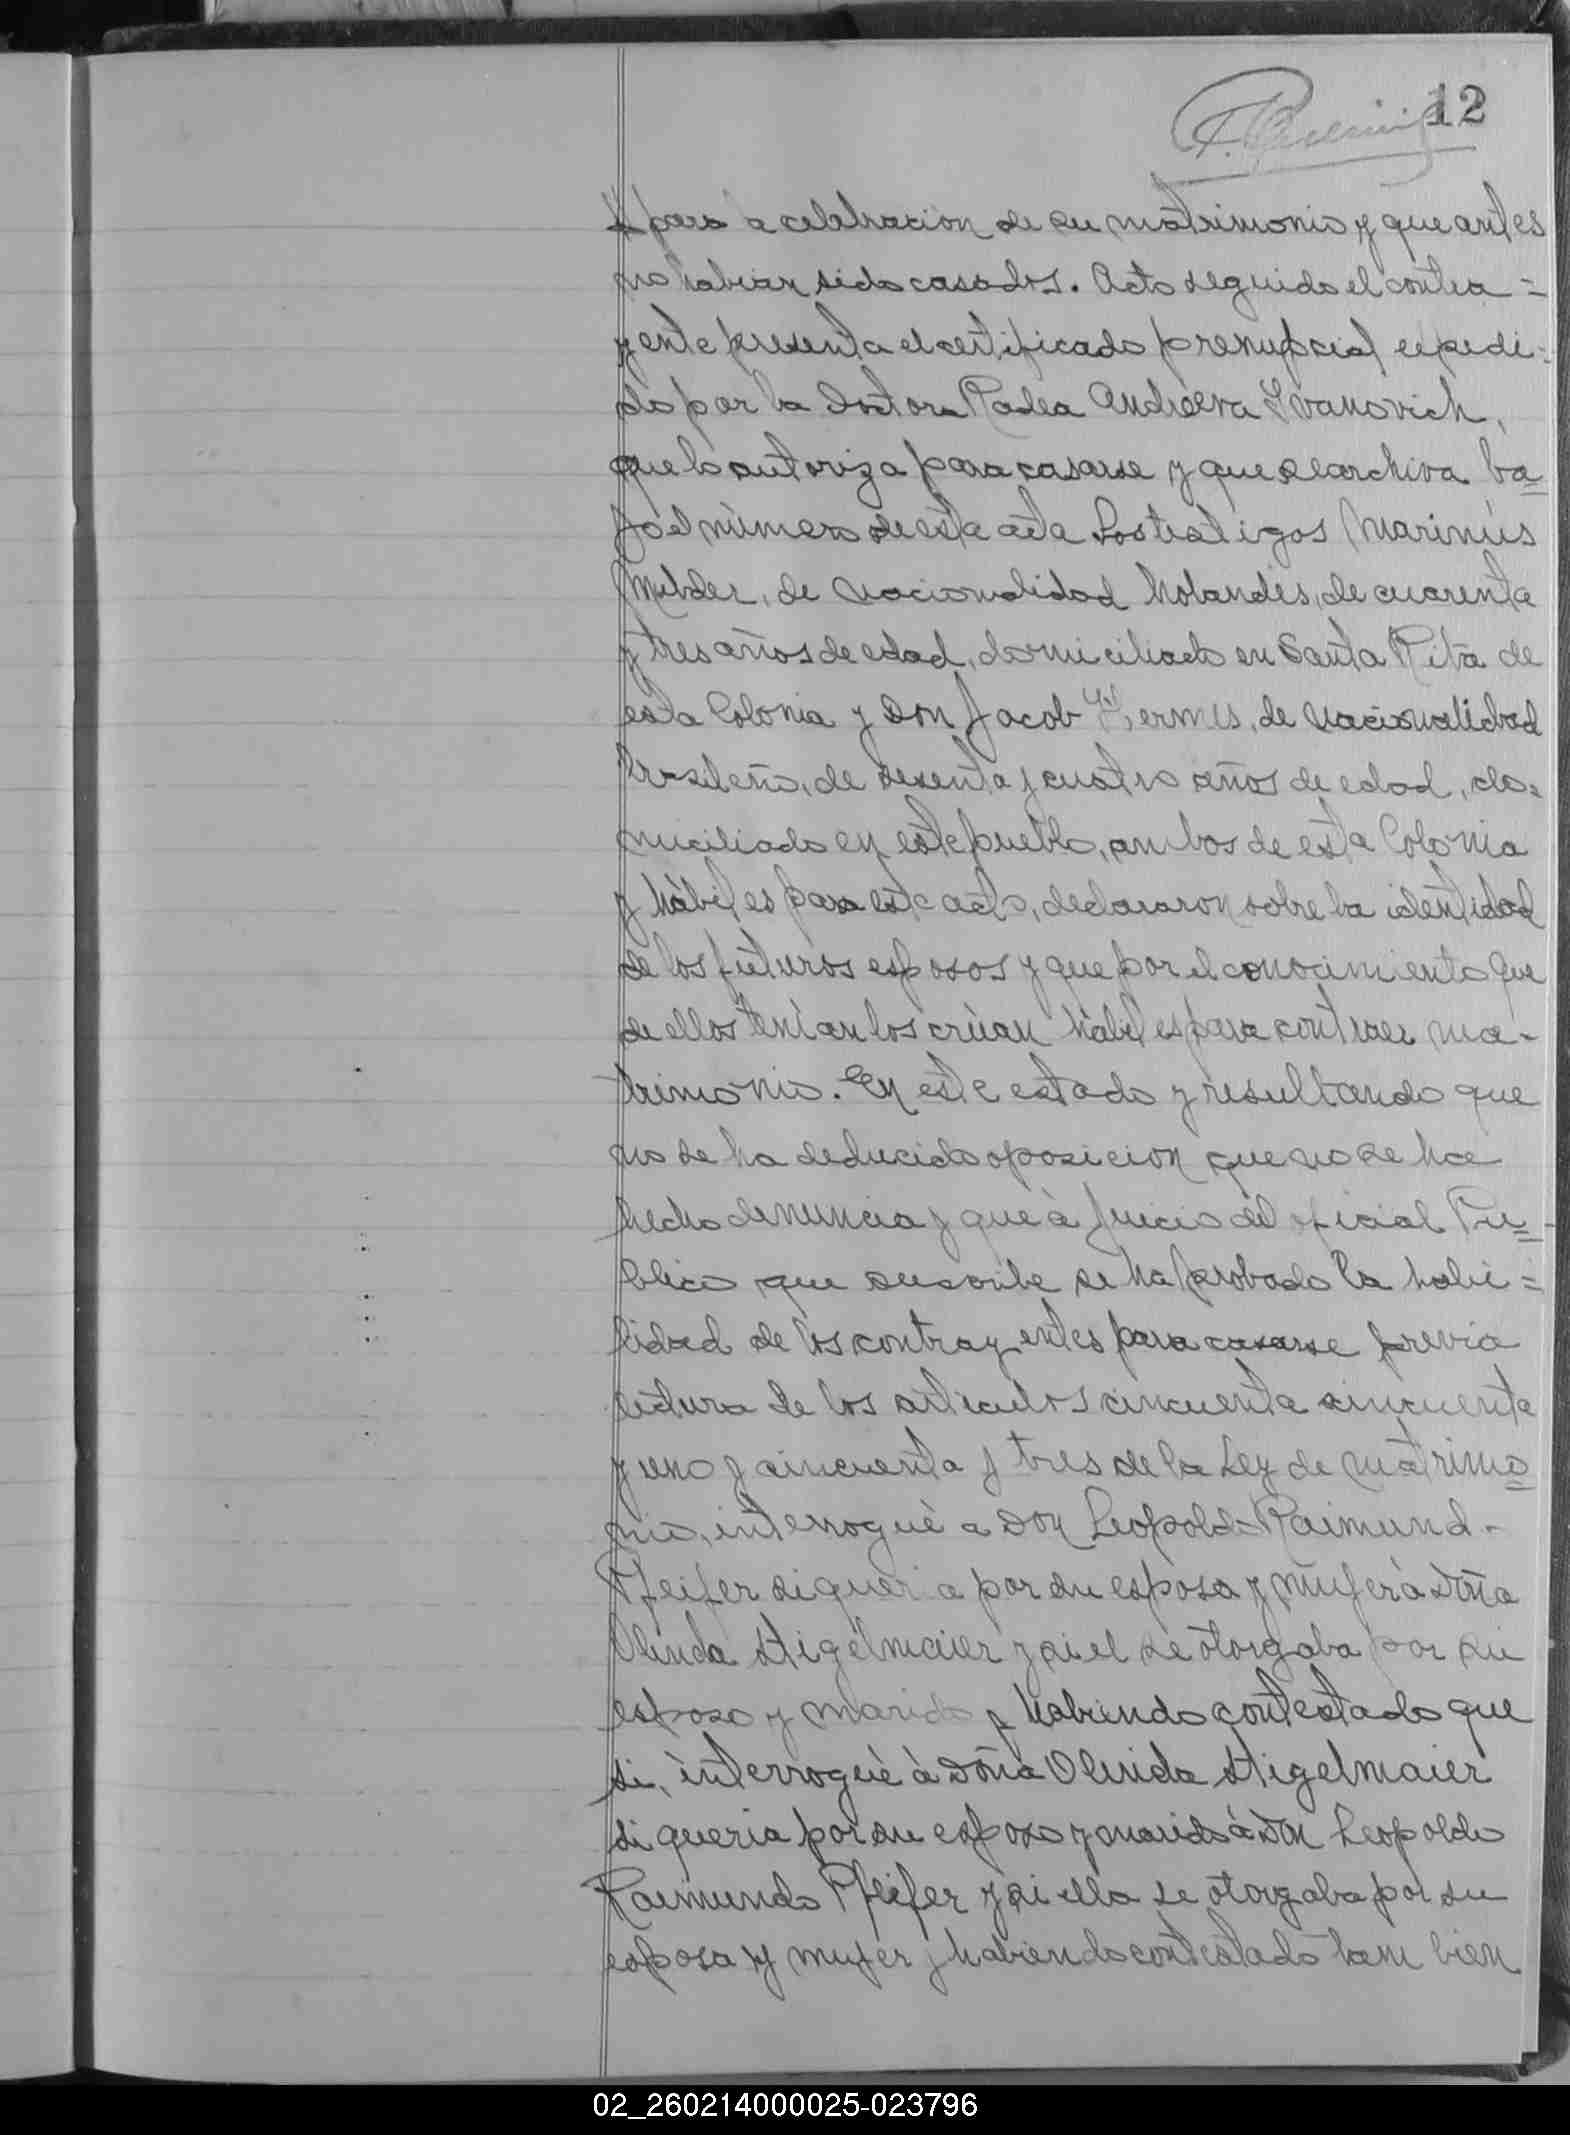 12
para la celebración de su matrimonio y que antes
no habian sido casados. Acto seguido el contra=
yente presenta el certificado prenupcial expedi=
do por la Doctora Radea Andreeva Ivanovich,
que lo autoriza para casarse y que se archiva ba=
jo el número de esta acta Los testigos Marinús
Mulder, de nacionalidad holandés, de cuarenta
y tres años de edad, domiciliado en Santa Rita de
esta Colonia y Don Jacob Hermes, de nacionalidad
brasileña, de sesenta y cuatro años de edad, do=
miciliado en este pueblo, ambos de esta Colonia
y hábiles para este acto, declararon sobre la identidad
de los futuros esposos y que por el conocimiento que
de ellos tenian los crúan hábiles para contraer ma-
trimonio. En este estado y resultando que
no se ha deducido oposicion que no se ha
hecho denuncia y que à juicio del oficial Pú=
blico que suscribe se ha probado la habi=
lidad de los contrayentes para casarse previa
lectura de los articulos cincuenta cincuenta
y uno y cincuenta y tres de la Ley de matrimo=
nio, interroguè a Don Leopoldo Raimund-
Pfeifer si queria por su esposa y mujer à Doña
Olinda Stigelmaier y si el se otorgaba por su
esposo y marido y habiendo contestado que
si, interroguè à Doña Olinda Stigelmaier
si queria por su esposo y marido à Don Leopoldo
Raimundo Pfeifer y si ella se otorgaba por su
esposa y mujer y habiendo contestado tam bien
02_260214000025-023796